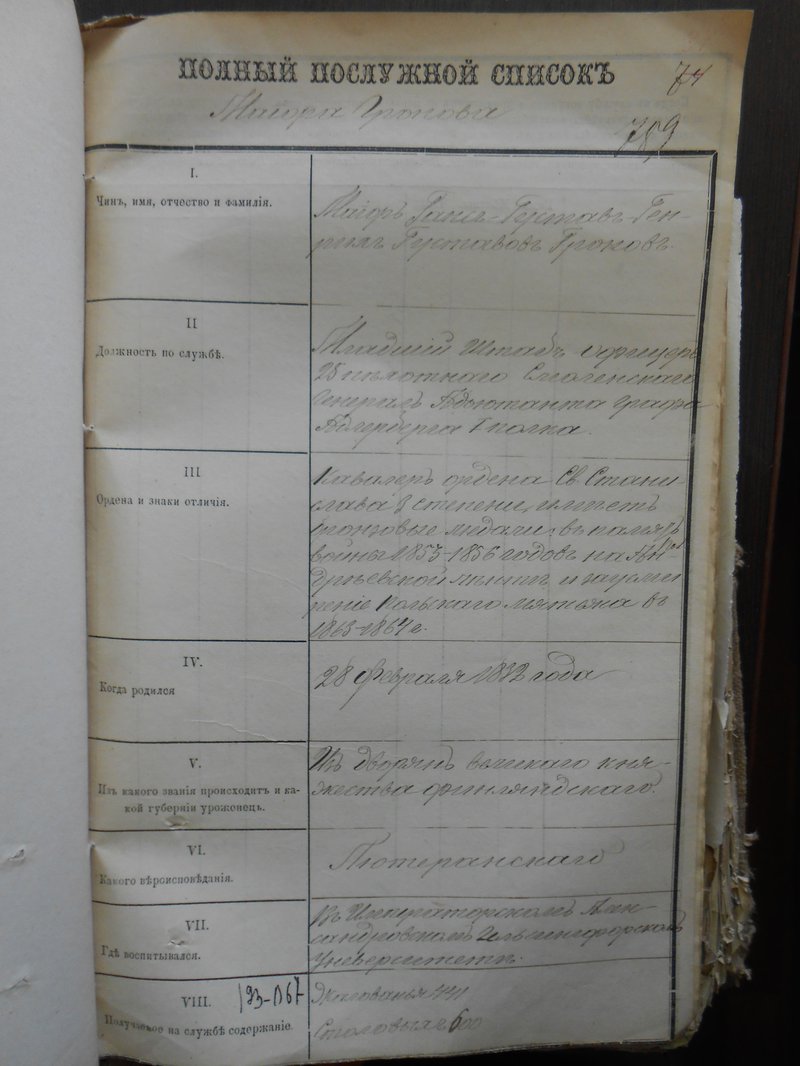 ПОЛНЫЙ ПОСЛУЖНОЙ СПИСОКЪ
74
Маіора Гронова
789
I.
Чинъ, имя, отчество и фамилія.
Маіоръ Гансъ-Густавъ-Ген-
рихъ Густавовъ Гроновъ.
II
Должность по службѣ.
Младшій Штабъ офицеръ
25 пѣхотнаго Смоленскаго
Генералъ Адъютанта графа
Адлерберга полка.
III
Ордена и знаки отличія.
Кавалеръ ордена Св. Стани-
слава 3 степени, имѣетъ
бронзовые медали: въ память
войны 1853-1856 годовъ на Ан-
дреевской лентѣ и за усми-
реніе Польскаго мятежа въ
1863-1864 г.
IV.
Когда родился
28 Февраля 1832 года
V.
Изъ какого званія происходитъ и ка-
кой губерніи уроженецъ.
Изъ дворянъ великаго кня-
жества финляндскаго.
VI.
Какого вѣроисповѣданія.
Лютеранскаго
VII.
Гдѣ воспитывался.
Въ Императорскомъ Алек-
сандровскомъ Гельсингфорскомъ
Университетѣ.
VIII.
193-067
Получаемое на службѣ содержаніе.
Жалованья 441
Столовыхъ 600